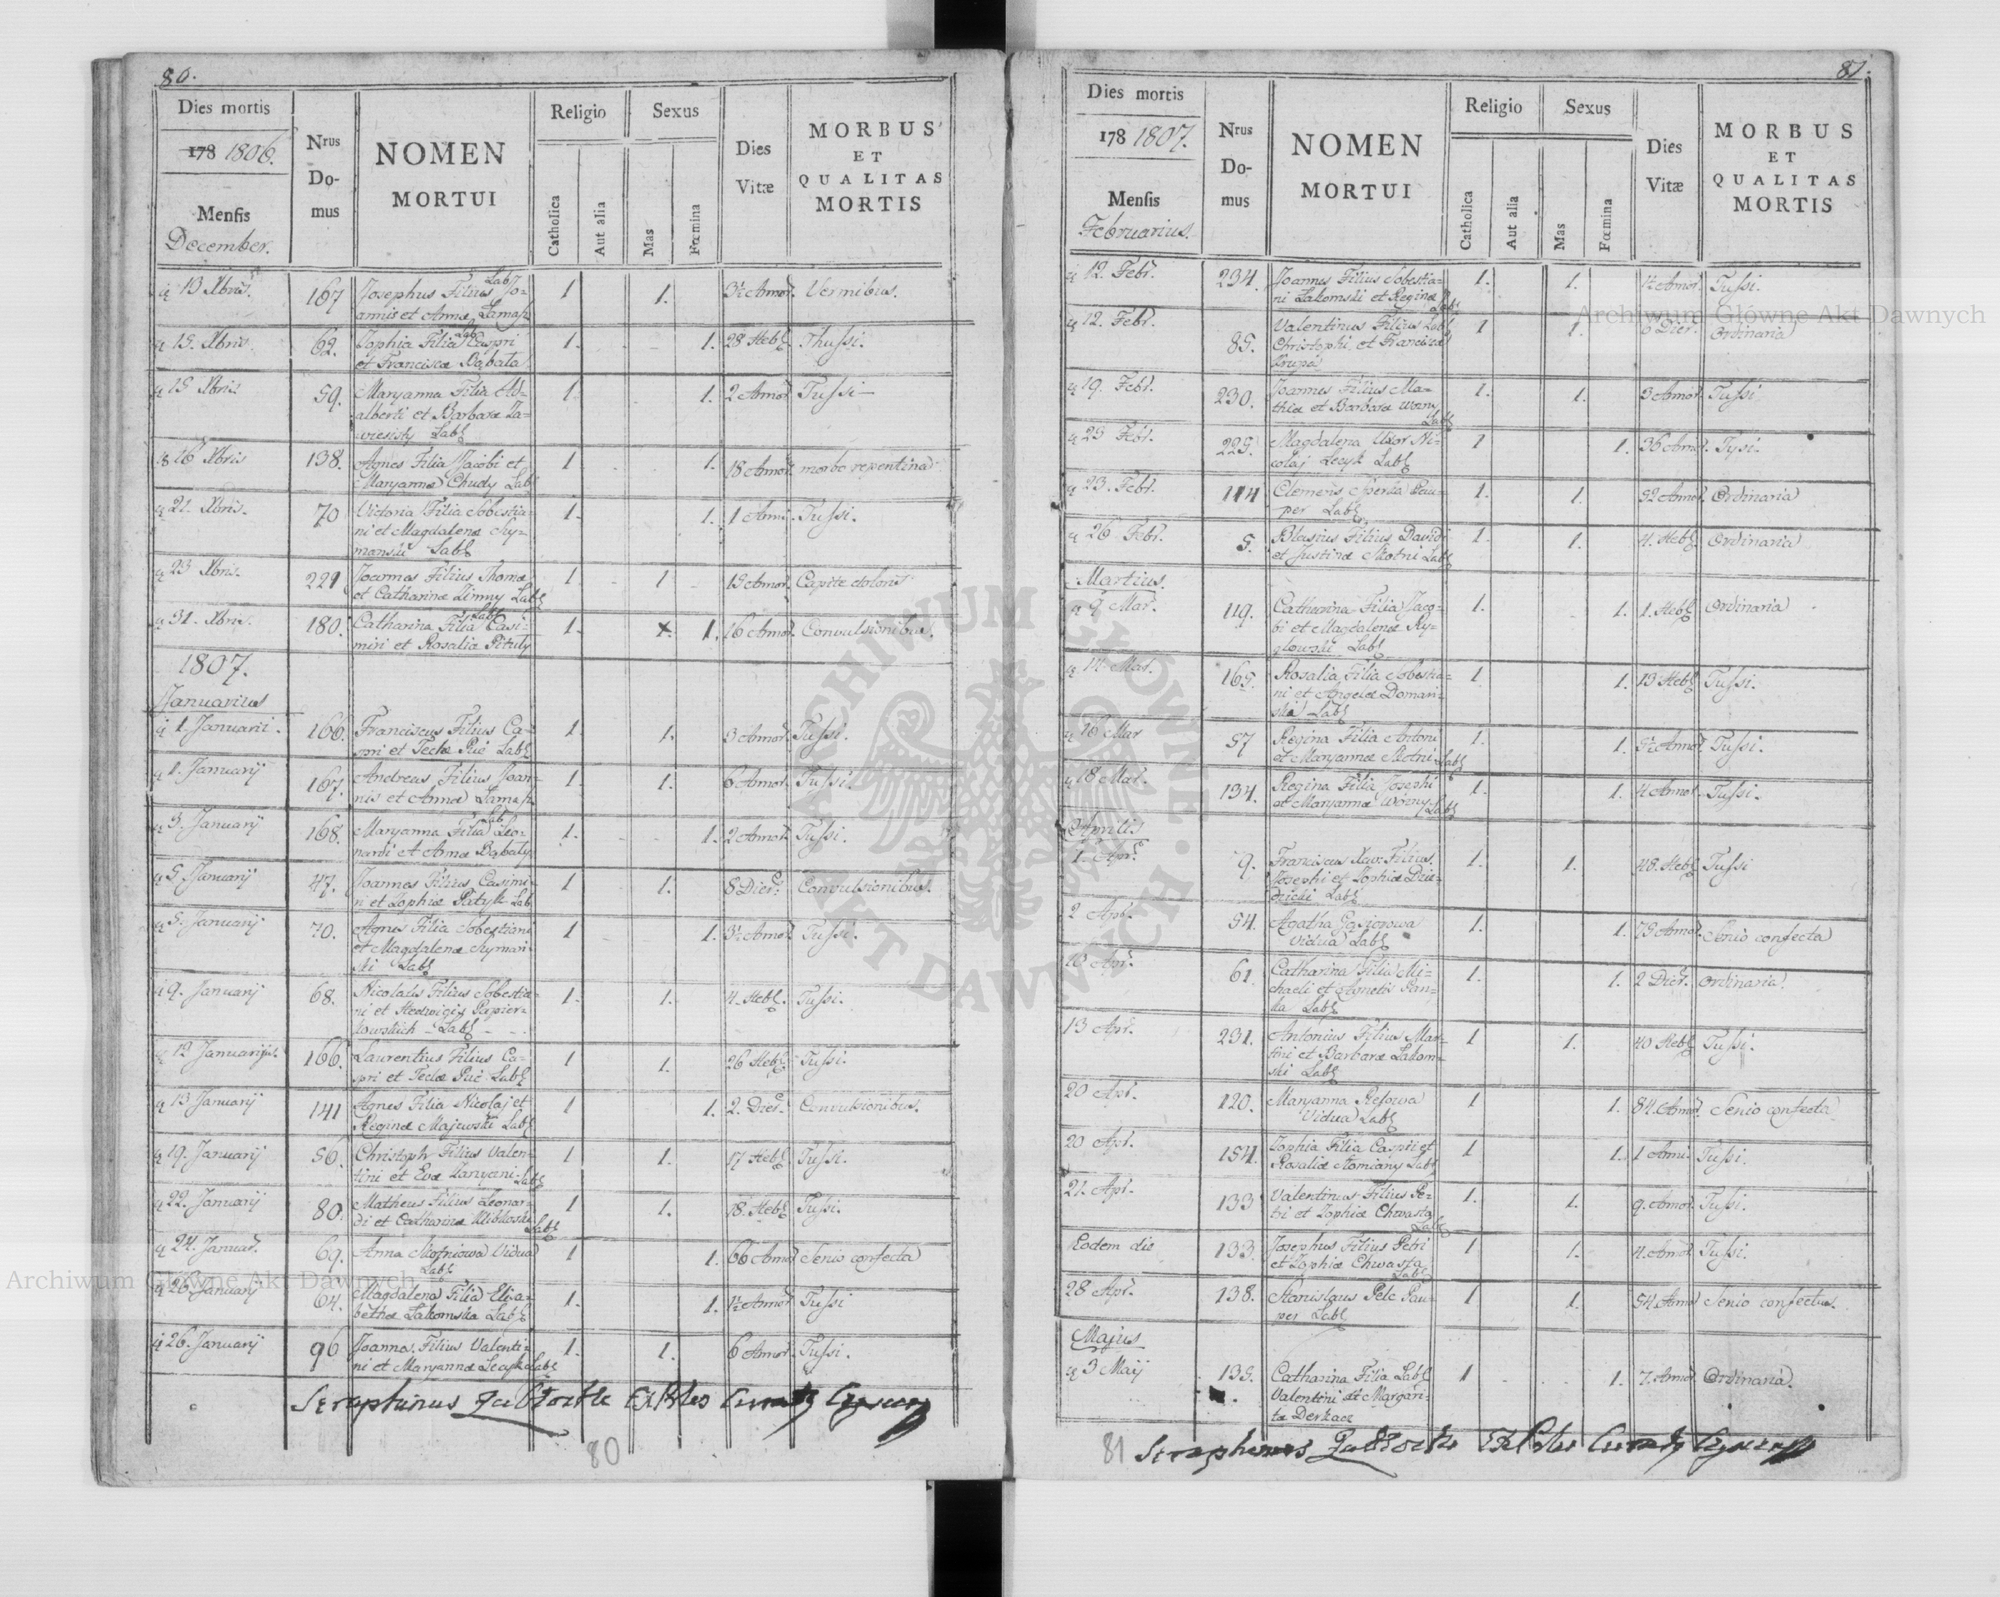 80.
Dies mortis
178 1806.
Mensis
December.
Nrus
Do-
mus
NOMEN
MORTUI
Religio
Catholica
Aut alia
Sexus
Mas
Fœmina
Dies
Vitæ
MORBUS
ET
QUALITAS
MORTIS
13 Xbris. 167 Josephus Filius Lab. Jo- 1 1. Vermibus.
annis et Annæ
15. Xbris 62. Zophia Filia Caspri 1. 1. 28 Heb. Thussi.
et Franciscæ Bąbala
15 Xbris 59. Maryanna Filia Ad- 1. 1. 2 Annor. Tussi
alberti et Barbaræ
Lab.
16 Xbris 138. Agnes Filia Jacobi et 1. 1. 18 Annor. morbo repentina
Maryannæ Chudy Lab.
21. Xbris. 70 Victoria Filia Sobestia- 1. 1. 1 Anni. Tussi.
ni et Magdalenæ Szy-
manski Lab.
23 Xbris. 221 Joannes Filius Thomæ 1. 1 Capite doloris
et Catharinæ Zimny Lab.
31. Xbris. 180. Catharina Filia Lab. Casi- 1. x. 1. 16 Annor. Convulsionibus.
miri et Rosaliæ Pituly
1807.
Januarius
1. Januarii. 166. Franciscus Filius Ca- 1. 1. 3 Annor. Tussi.
spri et Teclæ Puc Lab.
1. Januarij 167. Andreas Filius Joan- 1. 1. 6 Annor. Tussi.
nis et Annæ
3. Januarij 168. Maryanna Filia Leo- 1. 1. 2 Annor. Tussi.
nardi et Annæ Bąbaly
5. Januarij 47. Joannes Filius Casimi- 1 1. 8 Dier. Convulsionibus.
ri et Zophiæ Lab.
5. Januarij 70. Agnes Filia Sobestiani 1 1. Tussi.
et Magdalenæ Szyman-
ski Lab.
9. Januarij 68. Nicolaus Filius Sobestia- 1. 1. 4. Heb. Tussi.
ni et Hedwigis Papier-
kowskich Lab.
12 Januarij 166. Laurentius Filius Ca- 1 1. 26 Heb. Tussi.
spri et Teclæ Puc Lab.
13 Januarij 141 Agnes Filia Nicolaj et 1 1. 2. Dier. Convulsionibus.
Reginæ Majewski Lab.
19. Januarij 56. Christoph. Filius Valen- 1 1. 17 Heb. Tussi.
tini et Evæ Lab.
22. Januarij 80. Matheus Filius Leonar- 1 1. 18. Heb. Tussi.
di et Catharinæ Lab.
24. Januar. 69. Anna Vidua 1 1. 66 Annor Senio confecta
Lab.
26. Januarij 64. Magdalena Filia Elisa- 1. 1. Annor Tussi
bethæ Lakomska Lab.
26. Januarij 96 Joannes Filius Valenti- 1. 1. 6 Annor. Tussi.
ni et Maryannæ Lecyk Lab.
Seraphinus
80
81.
Dies mortis
178 1807.
Mensis
Februarius.
Nrus
Do-
mus
NOMEN
MORTUI
Religio
Catholica
Aut alia
Sexus
Mas
Fœmina
Dies
Vitæ
MORBUS
ET
QUALITAS
MORTIS
12. Febr. 234. Joannes Filius Sobestia- 1. 1. Tussi.
ni Lakomski et Reginæ Lab.
12. Febr. 85. Valentinus Filius Lab. 1 1. 6 Dier. Ordinaria
Christophi et Franciscæ
Krupa
19. Febr. 230. Joannes Filius Ma- 1. 1. 3 Annor. Tussi.
thiæ et Barbaræ Worny Lab.
225. Magdalena Uxor Ni- 1 1. 36 Annor. Tysi.
colaj Lecyk Lab.
23. Febr. 114 Clemens Sperka Pau- 1. 1. 52 Annor. Ordinaria
per Lab.
26 Febr. 5. Blasius Filius Davidi 1. 1. 4. Heb. Ordinaria
et Justinæ Skotni Lab.
Martius.
9 Mar. 119. Catharina Filia Jaco- 1. 1. 1. Heb. Ordinaria
bi et Magdalenæ Ry-
glowski Lab.
14 Mar. 165. Rosalia Filia Sobestia- 1 1. 13 Heb. Tussi.
ni et Angelæ Doman-
ski Lab.
16 Mar 57 Regina Filia Antoni 1. 1. Tussi.
et Maryannæ Skotni Lab.
18 Mar. 134. Regina Filia Josephi 1. 1. 4 Annor. Tussi.
et Maryannæ Worny Lab.
Aprilis
1. Apr. 9. Franciscus Xav: Filius 1. 1. 48. Heb. Tussi
Josephi et Zophiæ Dzie-
dzicki Lab.
2 Apr. 54. Agatha Gąsiorowa 1. 1. Senio confecta
Vidua Lab.
10 Apr. 61. Catharina Filia Mi- 1. 1. 2 Dier. Ordinaria.
chaeli et Agnetis Pan-
ka Lab.
13 Apr. 231. Antonius Filius Mar- 1 1. 40 Heb. Tussi.
tini et Barbaræ Lakom-
ski Lab.
20 Apr. 120. Maryanna Resowa 1 1. 84. Annor. Senio confecta
Vidua Lab.
20 Apr. 154. Zophia Filia Caspri et 1 1. 1 Anni. Tussi.
Rosaliæ Slomiany Lab.
21. Apr. 133 Valentinus Filius Pe- 1. 1. 9. Annor. Tussi.
tri et Zophiæ Chwasta Lab.
Eodem die 133. Josephus Filius Petri 1 1. 4. Annor Tussi.
et Zophiæ Chwasta Lab.
28 Apr. 138. Stanislaus Pelc Pau- 1 1. 54. Annor Senio confectus.
per Lab.
Majus
3 Maij 135. Catharina Filia Lab. 1 1. 7. Annor Ordinaria.
Valentini et Margari-
tæ Derkacz
81 Seraphinus
Archiwum Główne Akt Dawnych
Archiwum Główne Akt Dawnych
ARCHIWUM GŁÓWNE
AKT DAWNYCH